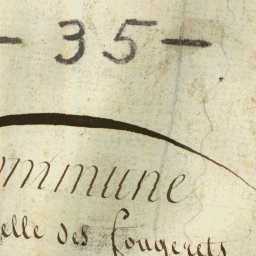 - 35 -
ommune
elle des Fougerets